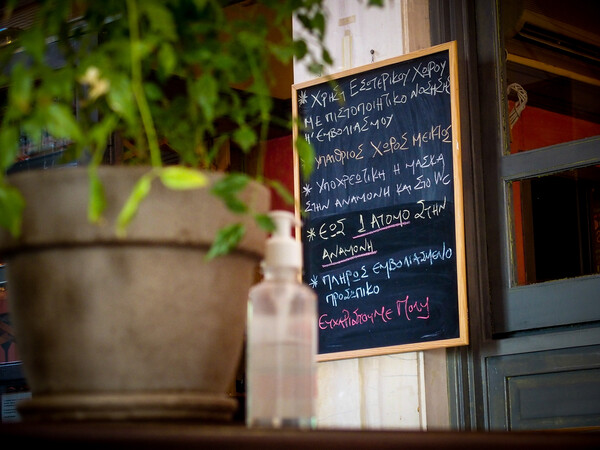 * ΧΡΗΣΗ ΕΣΩΤΕΡΙΚΟΥ ΧΩΡΟΥ
ΜΕ ΠΙΣΤΟΠΟΙΗΤΙΚΟ ΝΟΣΗΣΗΣ
Η ΕΜΒΟΛΙΑΣΜΟΥ
ΥΠΑΙΘΡΙΟΣ ΧΩΡΟΣ ΜΕΙΚΤΟΣ
* ΥΠΟΧΡΕΩΤΙΚΗ Η ΜΑΣΚΑ
ΣΤΗΝ ΑΝΑΜΟΝΗ ΚΑΙ ΣΤΟ WC
* ΕΩΣ 1 ΑΤΟΜΟ ΣΤΗΝ
ΑΝΑΜΟΝΗ
* ΠΛΗΡΩΣ ΕΜΒΟΛΙΑΣΜΕΝΟ
ΠΡΟΣΩΠΙΚΟ
ΕΥΧΑΡΙΣΤΟΥΜΕ ΠΟΛΥ